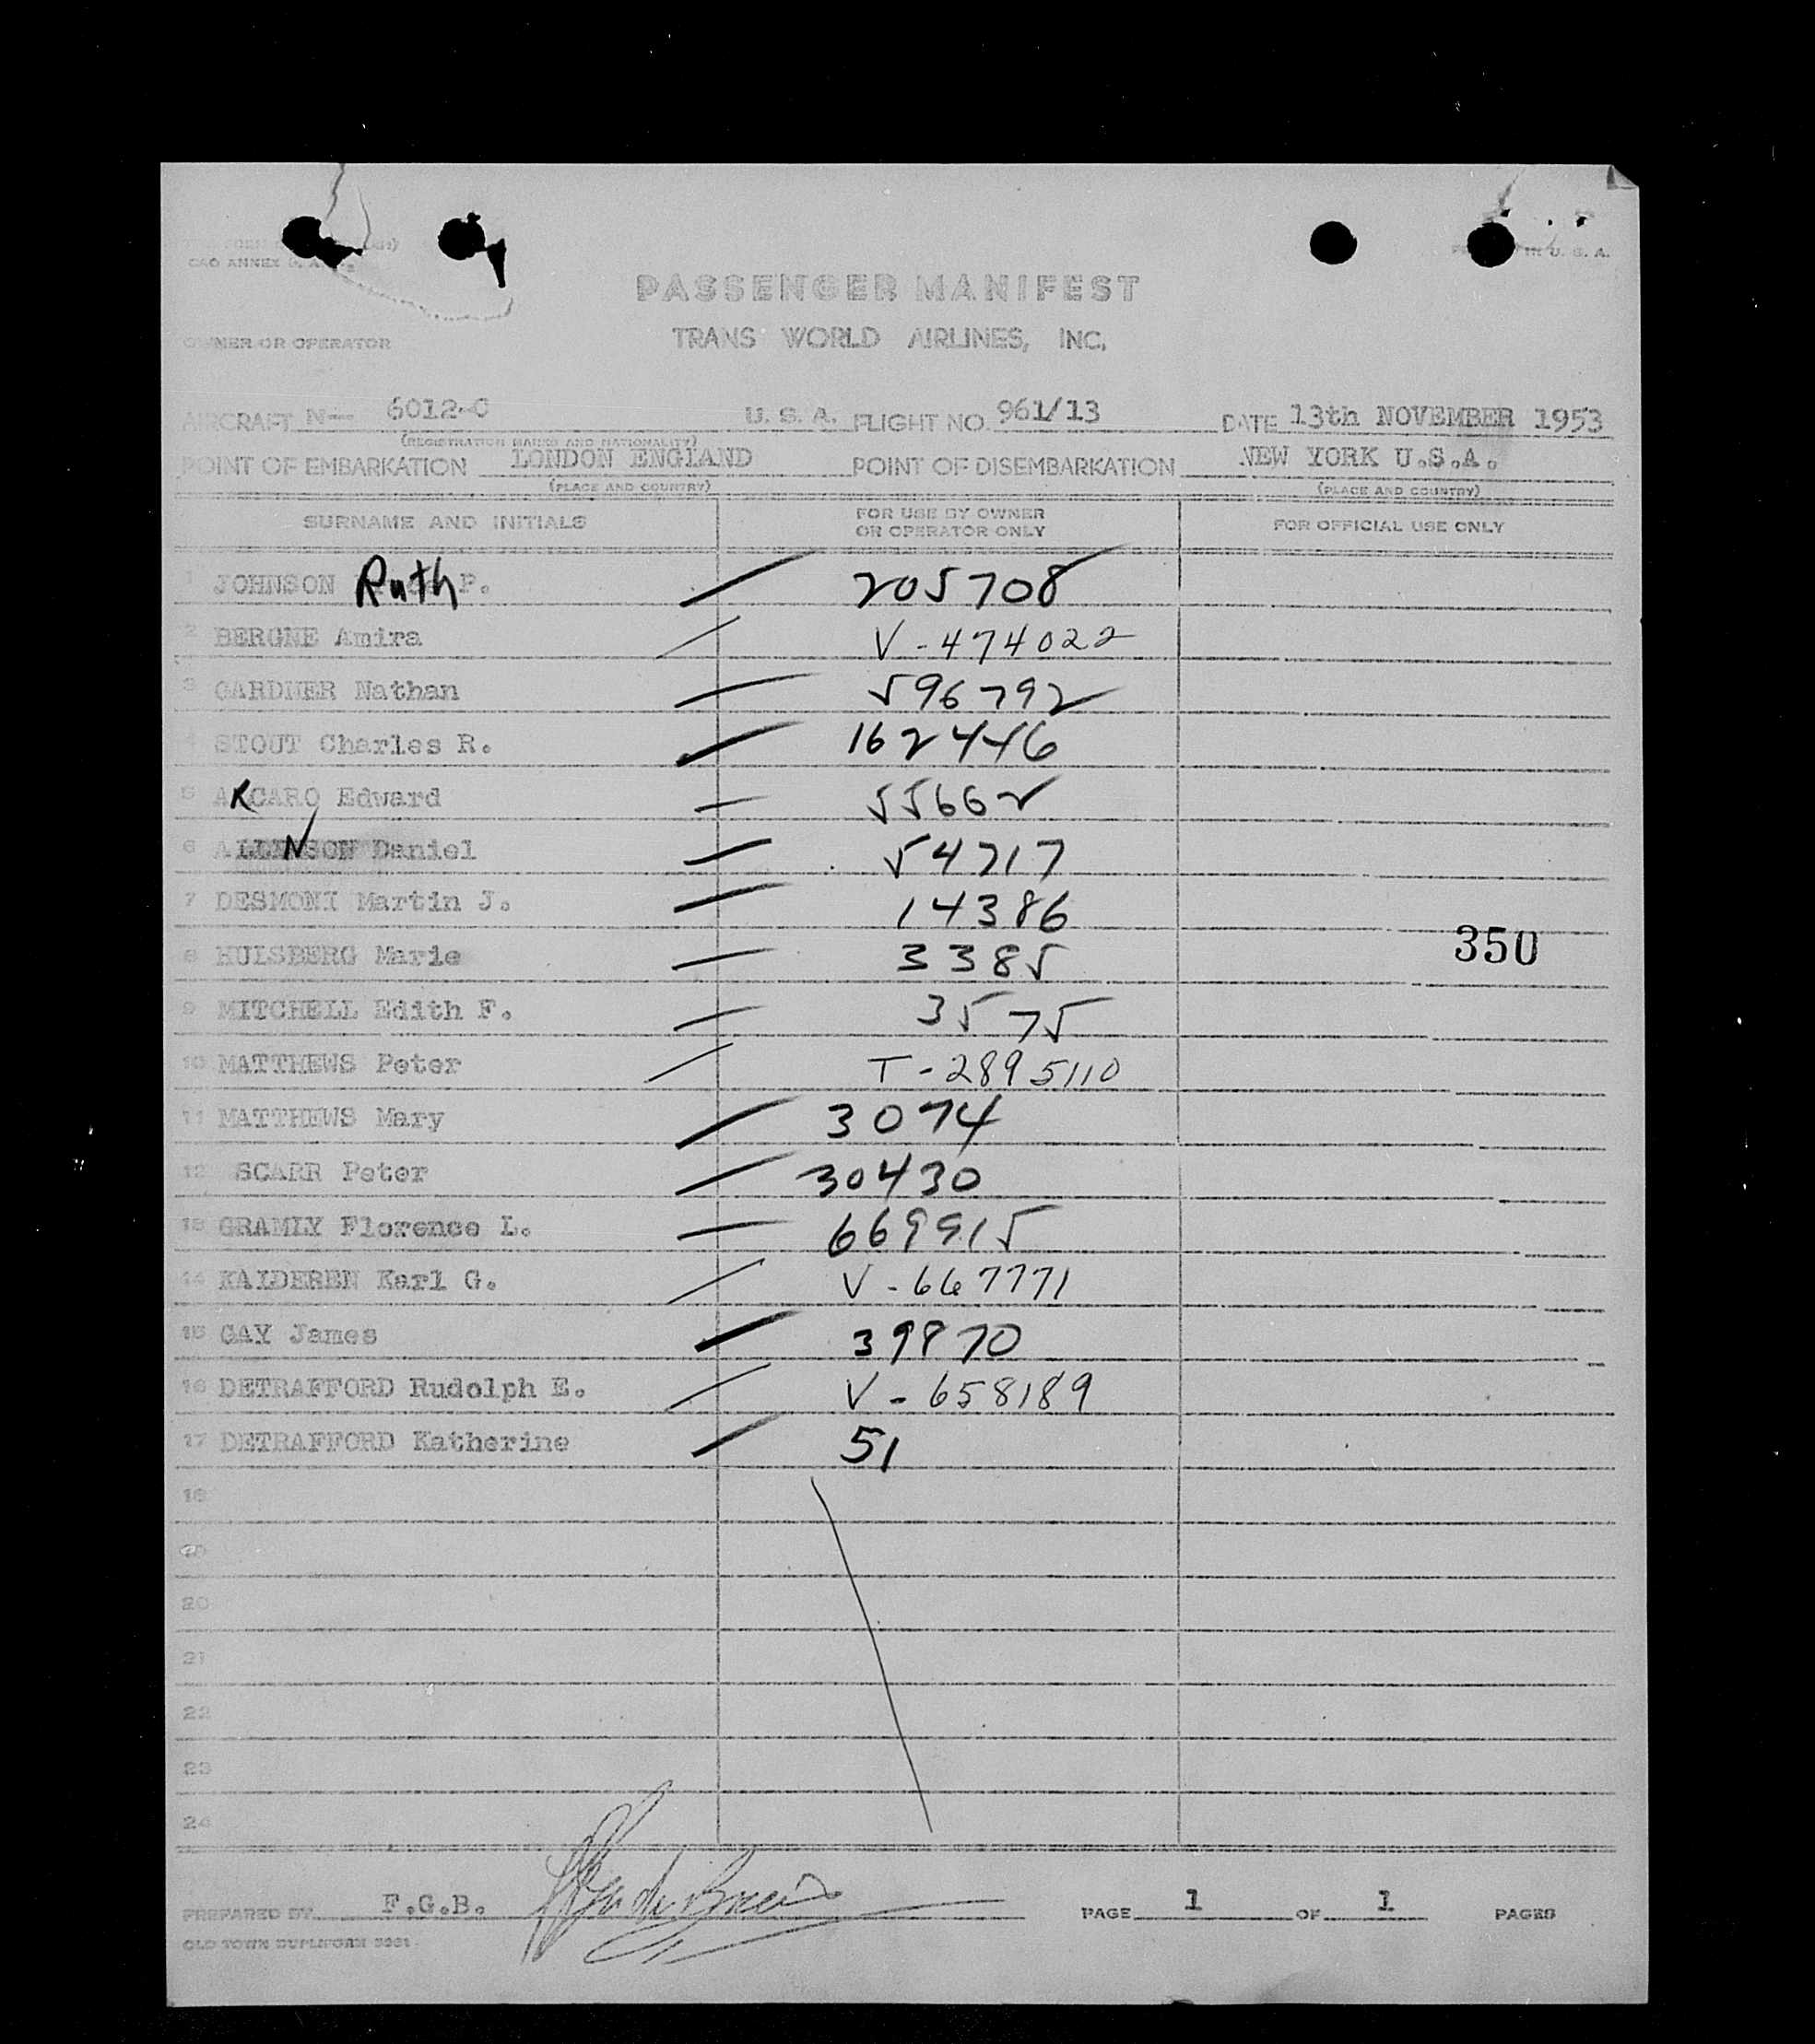 CAO ANNEX
IN U. S. A.
PASSENGER MANIFEST
OWNER OR OPERATOR
TRANS WORLD AIRLINES, INC.
AIRCRAFT N— 6012-C U. S. A. FLIGHT NO. 961/13 DATE 13th NOVEMBER 1953
(REGISTRATION MARKS AND NATIONALITY)
POINT OF EMBARKATION LONDON ENGLAND POINT OF DISEMBARKATION NEW YORK U.S.A.
(PLACE AND COUNTRY) (PLACE AND COUNTRY)
SURNAME AND INITIALS FOR USE BY OWNER OR OPERATOR ONLY FOR OFFICIAL USE ONLY
1 JOHNSON Ruth P. 205708
2 BERGNE Amira V-474022
3 GARDNER Nathan 596792
4 STOUT Charles R. 162446
5 ARCARO Edward 55662
6 Daniel 54717
7 DESMONI Martin J. 14386
8 HULSBERG Marie 3385
350
9 MITCHELL Edith F. 3575
10 MATTHEWS Peter T-2895110
11 MATTHEWS Mary 3074
12 SCARR Peter 30430
13 GRAMLY Florence L. 669915
14 KALDEREN Karl G. V-667771
15 GAY James 39870
16 DETRAFFORD Rudolph E. V-658189
17 DETRAFFORD Katherine 51
18
20
21
22
23
24
PREPARED BY F.G.B. PAGE 1 OF 1 PAGES
OLD TOWN DUPLIFORM